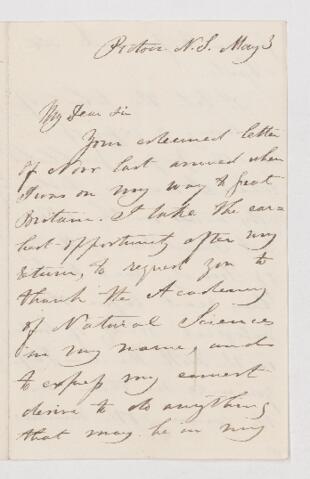 Pictou N.S. May 3
My Dear Sir
Your esteemed letter
of Nov last arrived when
I was on my way to great
Britain. I take the ear=
liest opportunity after my
return, to request you to
thank the Academy
of Natural Sciences
in my name, and
to express my earnest
desire to do anything
that may be in my